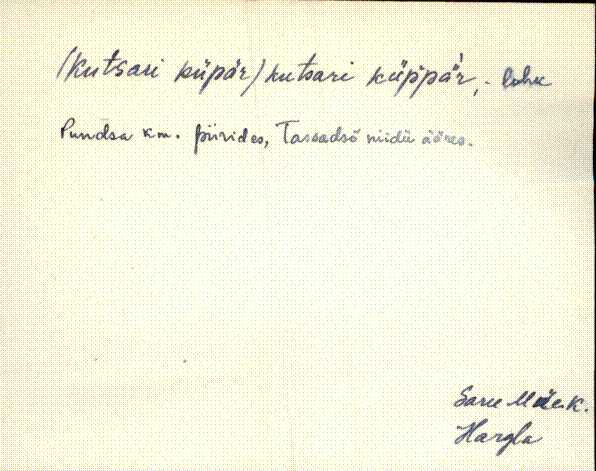 (Kutsari küpär) kutsari küppär, - lohk
Pundsa km. piirides, Tassadsõ niidü ääres.
Saru Mäek.
Hargla